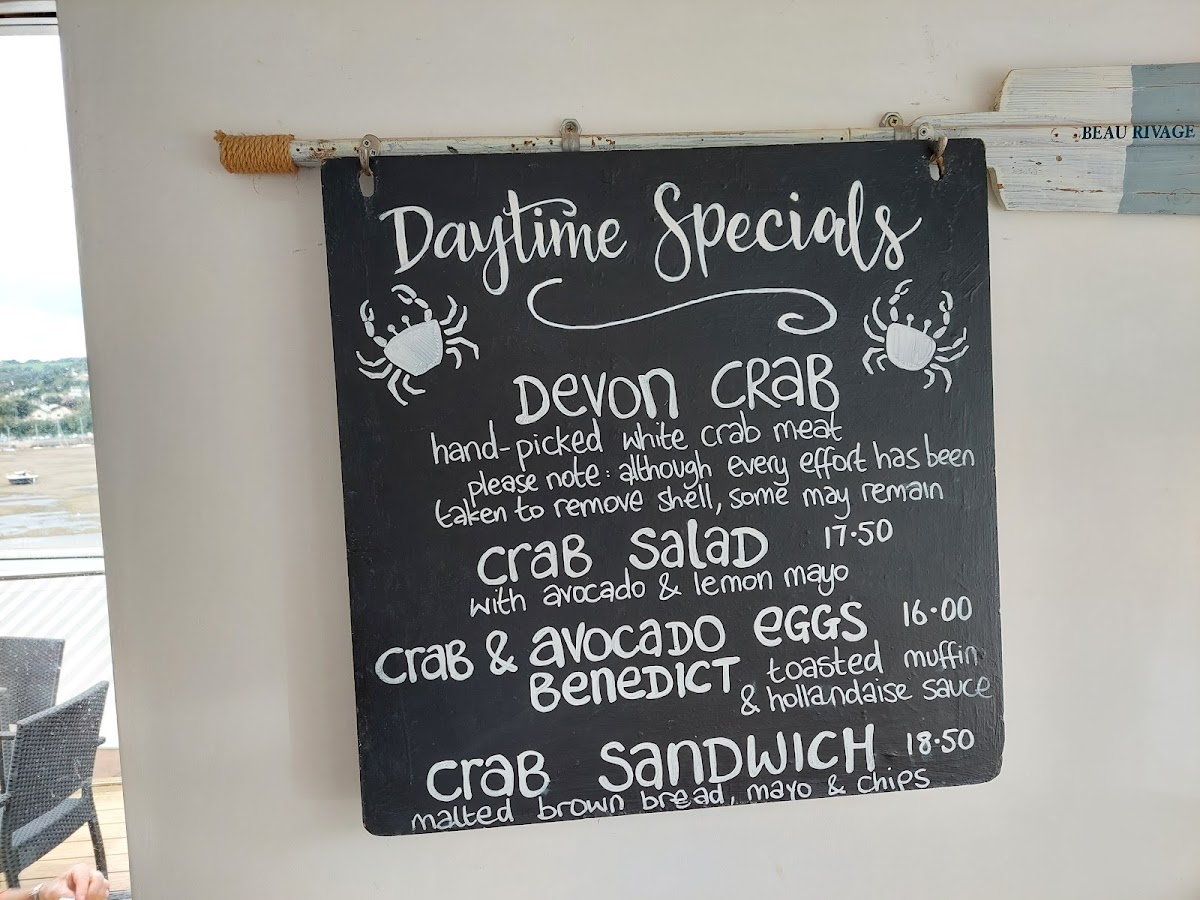 BEAU RIVAGE
Daytime Specials
Devon Crab
hand-picked white crab meat
please note: although every effort has been
taken to remove shell, some may remain
Crab Salad 17.50
with avocado & lemon mayo
Crab & Avocado Eggs 16.00
Benedict toasted muffin
& hollandaise sauce
Crab Sandwich 18.50
malted brown bread, mayo & chips